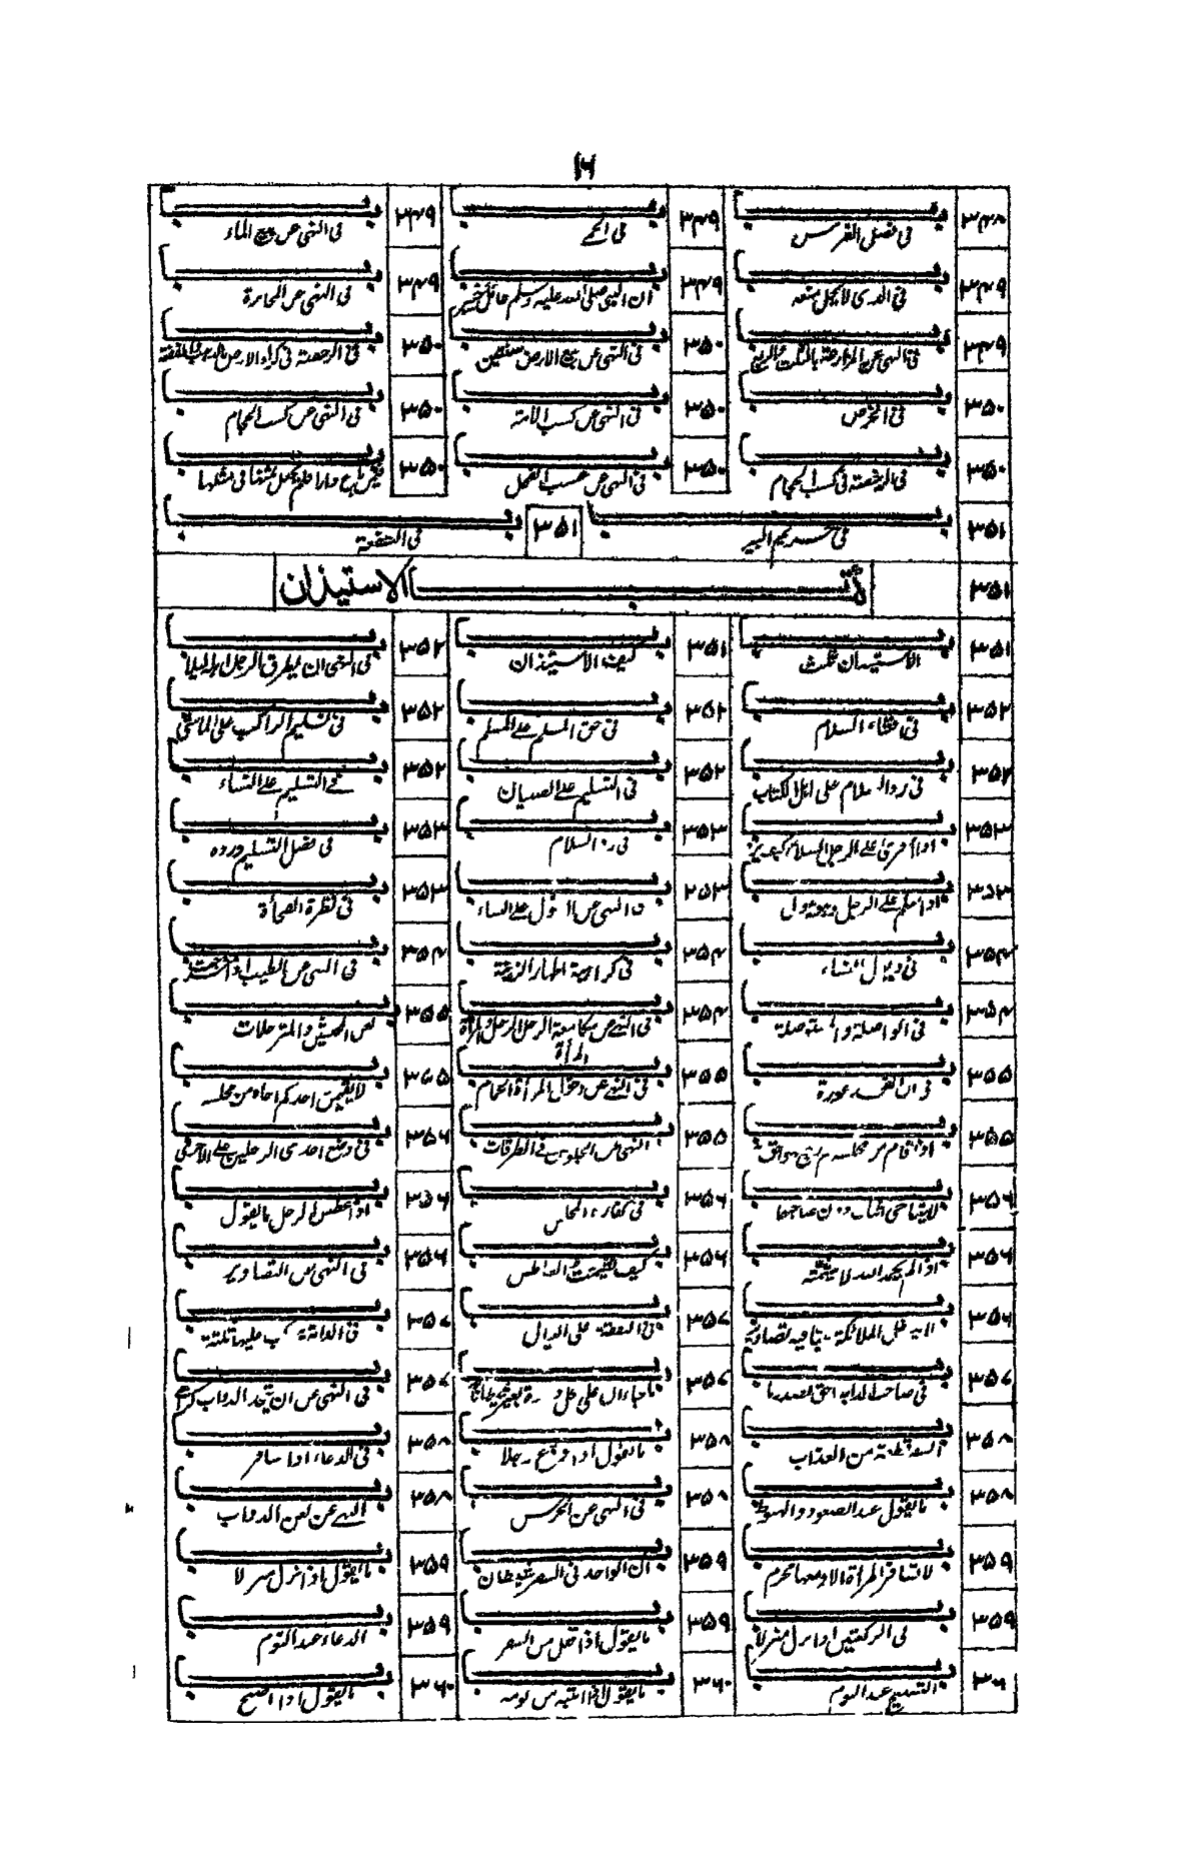 ١٦
٣٤٨ باب في فضل الغرس ٣٤٩ باب في الحمى ٣٤٩ باب في النهى عن بيع الماء
٣٤٩ باب في الذى لا يحل منعه ٣٤٩ باب ان النبى صلى الله عليه وسلم عامل خيبر ٣٤٩ باب فى النهى عن المخابرة
٣٤٩ باب فى النهى عن المزارعة بالثلث والربع ٣٥٠ باب فى النهى عن بيع الارض سنتين ٣٥٠ باب فى الرخصة فى كراء الارض
٣٥٠ باب فى الخرص ٣٥٠ باب فى النهى عن كسب الامة ٣٥٠ باب فى النهى عن كسب الحجام
٣٥٠ باب فى الرخصة فى كسب الحجام ٣٥٠ باب فى النهى عن عسب الفحل ٣٥٠ باب
٣٥١ باب فى حريم البير ٣٥١ باب فى الشفعة
٣٥١ كتاب الاستيذان
٣٥١ باب الاستيذان ثلث ٣٥١ باب كيف الاستيذان ٣٥٢ باب فى النهى ان يطرق الرجل اهله ليلا
٣٥٢ باب فى افشاء السلام ٣٥٢ باب فى حق المسلم على المسلم ٣٥٢ باب فى تسليم الراكب على الماشى
٣٥٢ باب فى رد السلام على اهل الكتاب ٣٥٢ باب فى التسليم على الصبيان ٣٥٢ باب فى التسليم على النساء
٣٥٣ باب اذا قرئ على الرجل السلام كيف يرد ٣٥٣ باب فى رد السلام ٣٥٣ باب فى فضل التسليم ورده
٣٥٣ باب اذا سلم على الرجل وهو يبول ٣٥٣ باب فى النهى عن الدخول على النساء ٣٥٣ باب فى نظرة الفجأة
٣٥٤ باب فى ذيول النساء ٣٥٤ باب فى كراهية اظهار الزينة ٣٥٤ باب فى النهى عن الطيب اذا خرجت
٣٥٤ باب فى الواصلة والمستوصلة ٣٥٤ باب فى النهى عن مكامعة الرجل الرجل والمرأة المرأة ٣٥٥ باب لعن المخنثين والمترجلات
٣٥٥ باب فى ان الفخذ عورة ٣٥٥ باب فى النهى عن دخول المرأة الحمام ٣٥٥ باب لا يقيمن احدكم اخاه من مجلسه
٣٥٥ باب اذا قام من مجلسه ثم رجع فهو احق به ٣٥٥ باب النهى عن الجلوس فى الطرقات ٣٥٦ باب فى وضع احدى الرجلين على الاخرى
٣٥٦ باب لا يتناجى اثنان دون صاحبهما ٣٥٦ باب فى كفارة المجلس ٣٥٦ باب اذا عطس الرجل ما يقول
٣٥٦ باب اذا لم يحمد الله لا يشمته ٣٥٦ باب كيف تشميت العاطس ٣٥٦ باب فى النهى عن التصاوير
٣٥٦ باب لا تدخل الملائكة بيتا فيه تصاوير ٣٥٧ باب فى النفقة على العيال ٣٥٧ باب فى الدابة يركب عليها ثلثة
٣٥٧ باب فى صاحب الدابة احق بصدرها ٣٥٧ باب ما جاء ان على كل ذروة بعير شيطانا ٣٥٧ باب فى النهى عن ان يتخذ الدواب كراسى
٣٥٨ باب السفر قطعة من العذاب ٣٥٨ باب ما يقول اذا ودع رجلا ٣٥٨ باب فى الدعاء اذا سافر
٣٥٨ باب ما يقول عند الصعود والهبوط ٣٥٨ باب فى النهى عن الجرس ٣٥٨ باب النهى عن لعن الدواب
٣٥٩ باب لا تسافر المرأة الا ومعها محرم ٣٥٩ باب ان الواحد فى السفر شيطان ٣٥٩ باب ما يقول اذا نزل منزلا
٣٥٩ باب فى الركعتين اذا نزل منزلا ٣٥٩ باب ما يقول اذا قفل من السفر ٣٥٩ باب الدعاء عند النوم
٣٦٠ باب التسبيح عند النوم ٣٦٠ باب ما يقول اذا انتبه من نومه ٣٦٠ باب ما يقول اذا اصبح